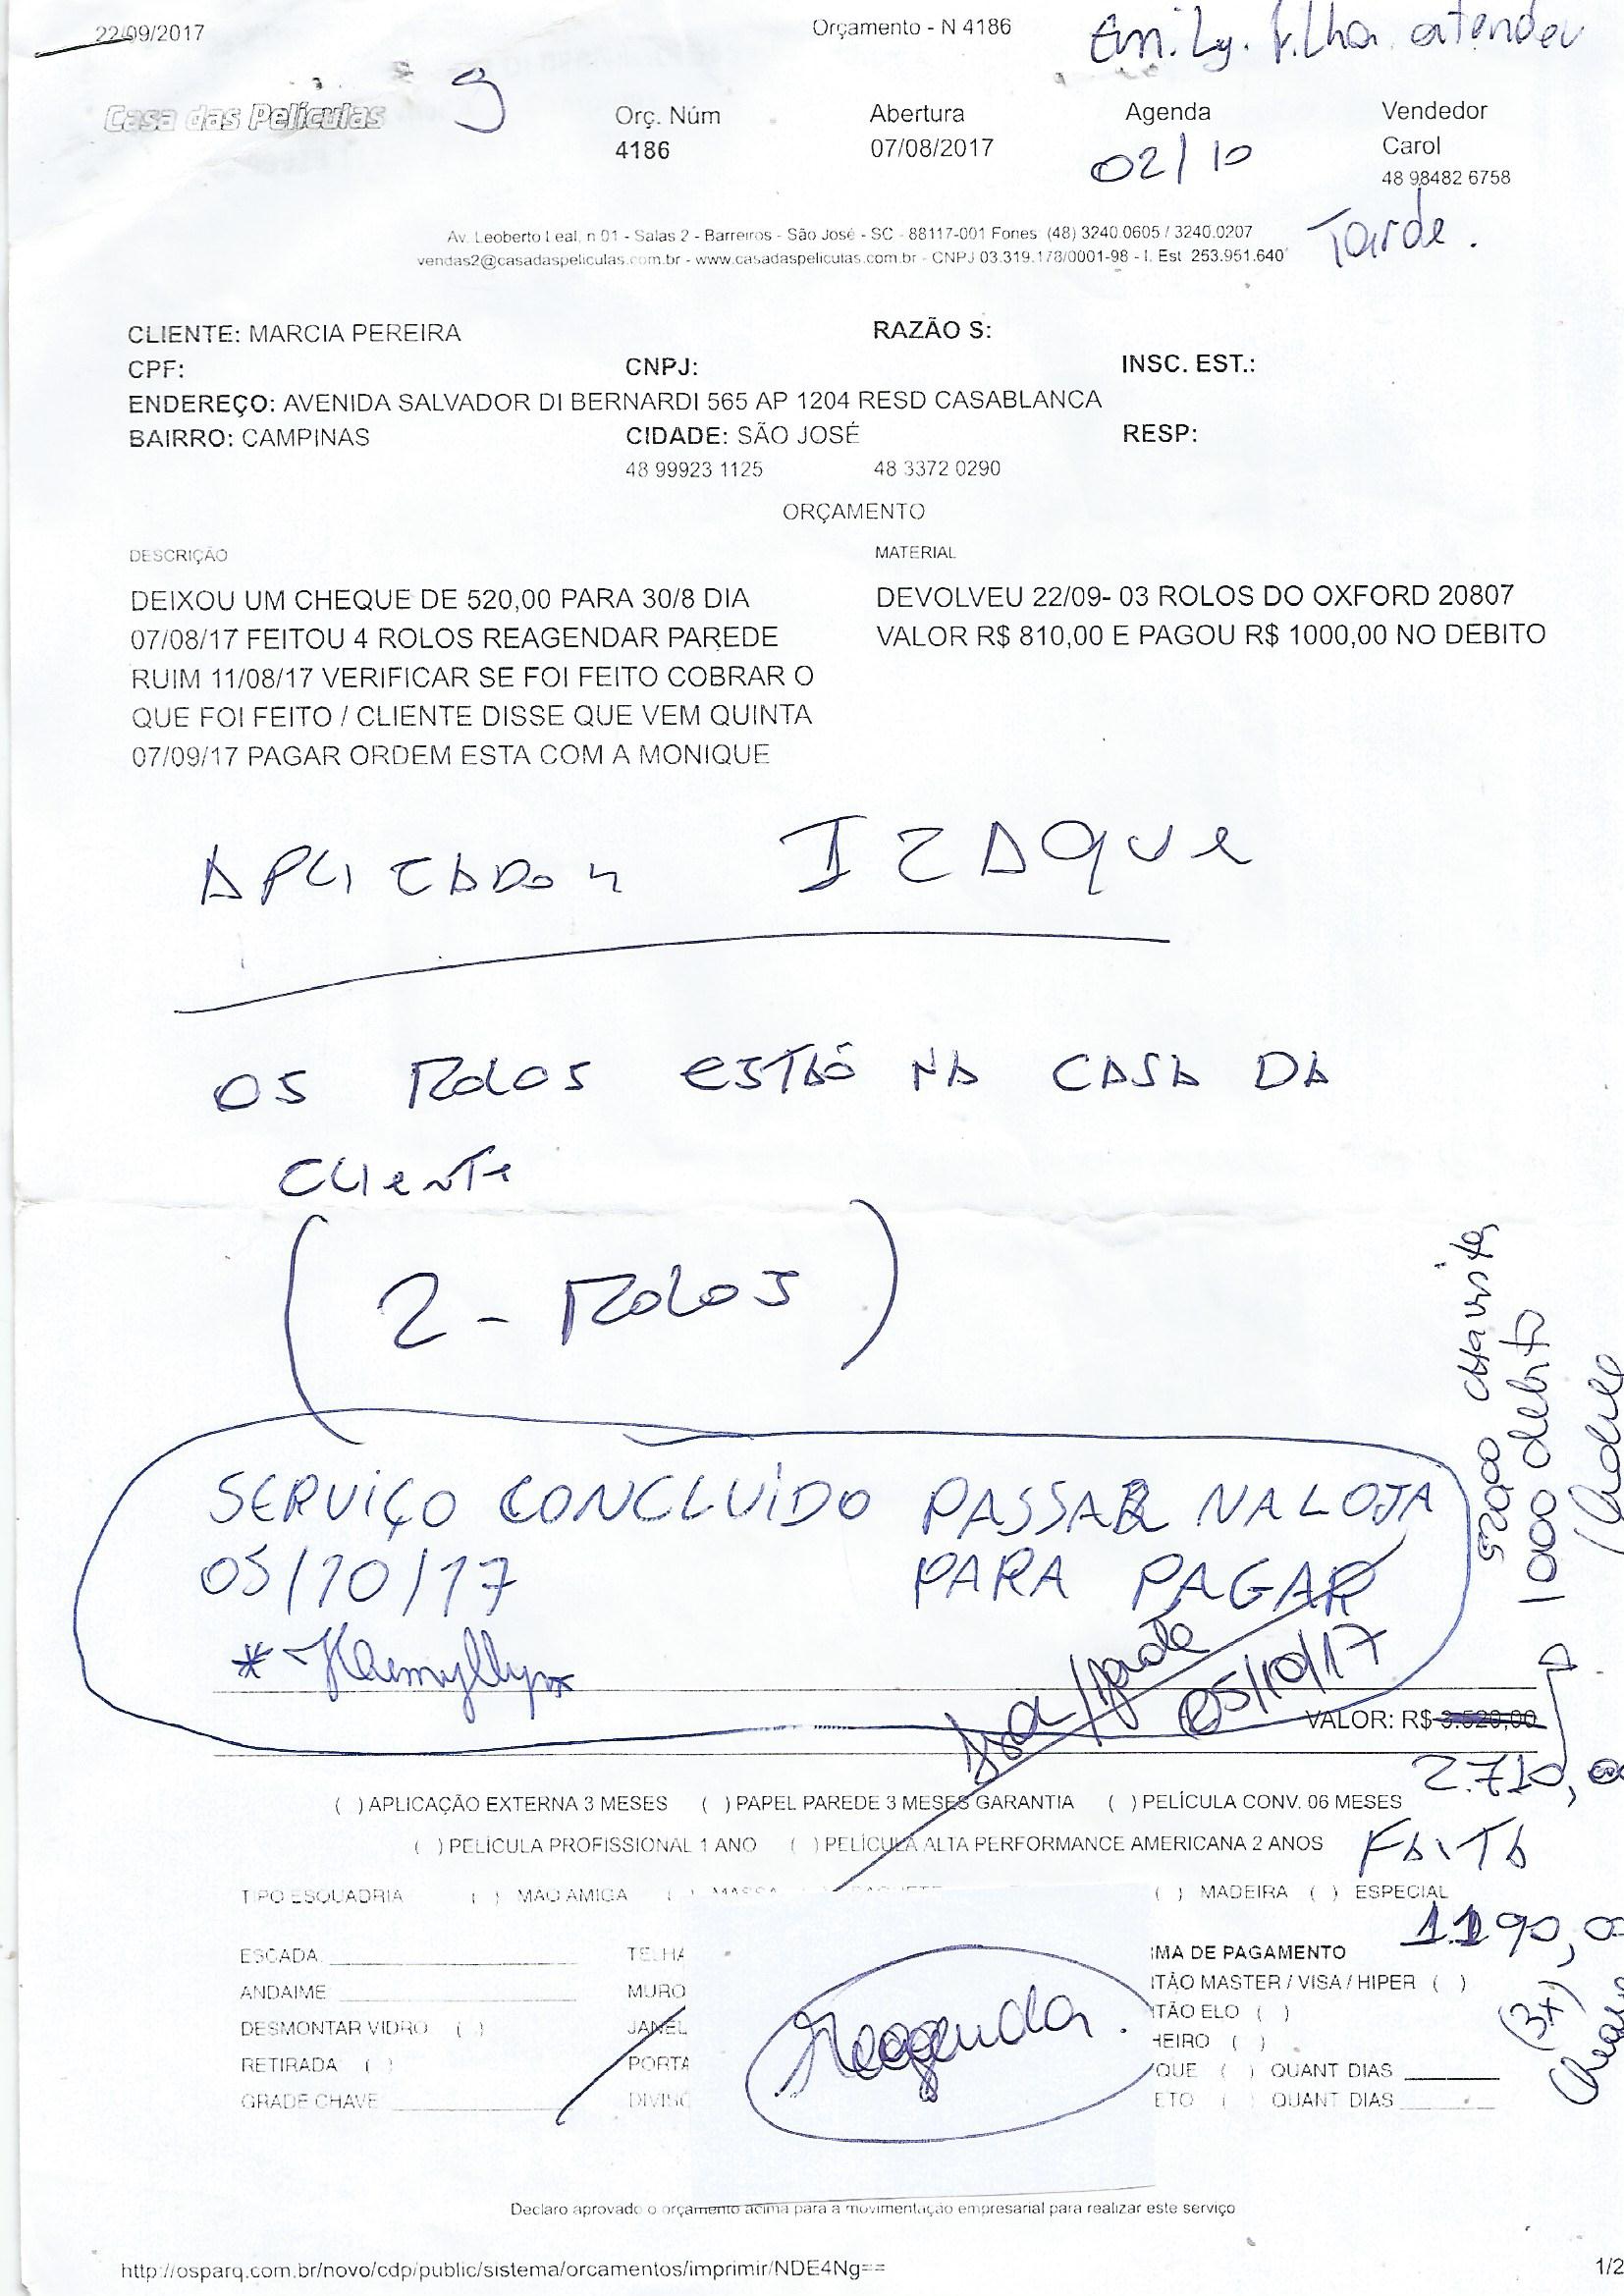 22/09/2017 Orçamento - N 4186
filha atendeu
9
Casa das Películas Orç. Núm Abertura Agenda Vendedor
4186 07/08/2017 02/10 Carol
48 98482 6758
Tarde.
Av. Leoberto Leal, n 01 - Salas 2 - Barreiros - São José - SC - 88117-001 Fones (48) 3240.0605 / 3240.0207
vendas2@casadaspeliculas.com.br - www.casadaspeliculas.com.br - CNPJ 03.319.178/0001-98 - I. Est 253.951.640
CLIENTE: MARCIA PEREIRA RAZÃO S:
CPF: CNPJ: INSC. EST.:
ENDEREÇO: AVENIDA SALVADOR DI BERNARDI 565 AP 1204 RESD CASABLANCA
BAIRRO: CAMPINAS CIDADE: SÃO JOSÉ RESP:
48 99923 1125 48 3372 0290
ORÇAMENTO
DESCRIÇÃO MATERIAL
DEIXOU UM CHEQUE DE 520,00 PARA 30/8 DIA
07/08/17 FEITOU 4 ROLOS REAGENDAR PAREDE
RUIM 11/08/17 VERIFICAR SE FOI FEITO COBRAR O
QUE FOI FEITO / CLIENTE DISSE QUE VEM QUINTA
07/09/17 PAGAR ORDEM ESTA COM A MONIQUE
DEVOLVEU 22/09- 03 ROLOS DO OXFORD 20807
VALOR R$ 810,00 E PAGOU R$ 1000,00 NO DEBITO
APLICADOR IZAQUE
OS ROLOS ESTÃO NA CASA DA
CLIENTE
(2 - ROLOS)
SERVIÇO CONCLUÍDO PASSAR NA LOJA
05/10/17 PARA PAGAR
05/10/17
1000 debito
VALOR: R$ 3.520,00
2.710,00
( ) APLICAÇÃO EXTERNA 3 MESES ( ) PAPEL PAREDE 3 MESES GARANTIA ( ) PELÍCULA CONV. 06 MESES
( ) PELÍCULA PROFISSIONAL 1 ANO ( ) PELÍCULA ALTA PERFORMANCE AMERICANA 2 ANOS
FALTA
TIPO ESQUADRIA ( ) MAO AMIGA ( ) MASSA ( ) MADEIRA ( ) ESPECIAL
1190,00
(3x)
ESCADA TELHA
ANDAIME MURO
DESMONTAR VIDRO ( ) JANEL
RETIRADA ( ) PORTA
GRADE CHAVE DIVISO
Reagenda.
MA DE PAGAMENTO
TÃO MASTER / VISA / HIPER ( )
TÃO ELO ( )
HEIRO ( )
QUE ( ) QUANT DIAS
ETO ( ) QUANT DIAS
Declaro aprovado o orçamento acima para a movimentação empresarial para realizar este serviço
http://osparq.com.br/novo/cdp/public/sistema/orcamentos/imprimir/NDE4Ng== 1/2